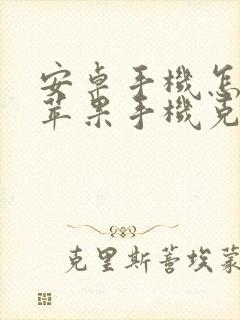 安卓手機怎
苹果手機克
克里斯蒂埃蒙